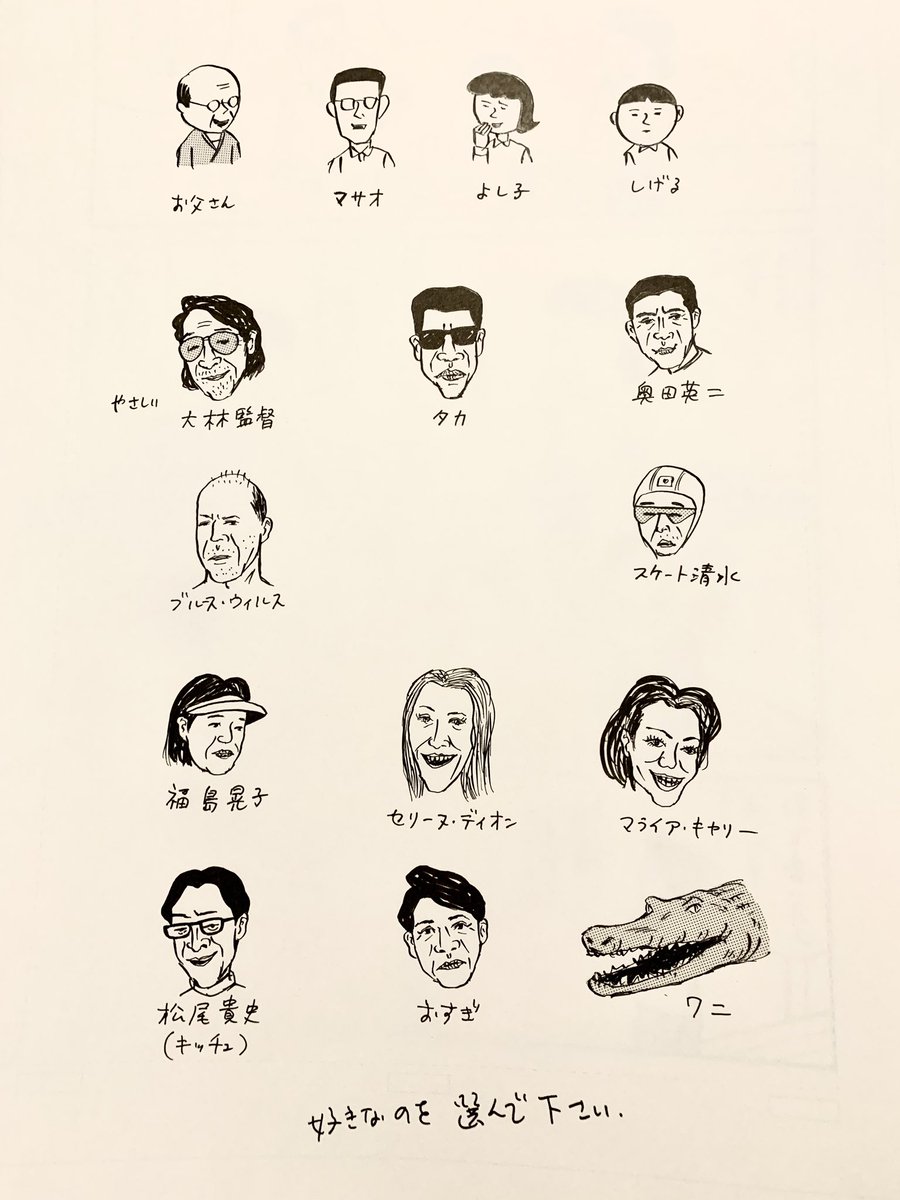 お父さん
マサオ
よし子
しげる
やさしい
大林監督
タカ
奥田英二
ブルース・ウィルス
スケート清水
福島晃子
セリーヌ・ディオン
マライア・キャリー
松尾貴史
(キッチュ)
おすぎ
ワニ
好きなのを選んで下さい.